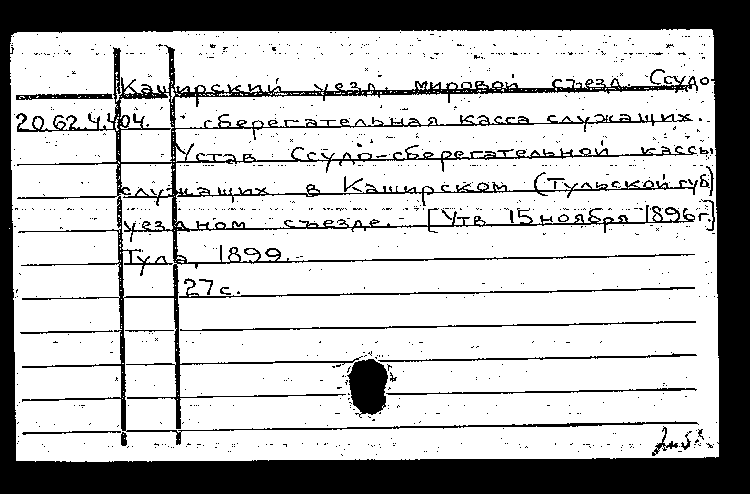 Каширский уезд. мировой съезд. Ссудо-
20.62.4.404. сберегательная касса служащих.
Устав Ссудо-сберегательной кассы
служащих в Каширском (Тульской губ)
уездном съезде. - [Утв 15 ноября 1896 г.]
Тула, 1899. -
27 с.